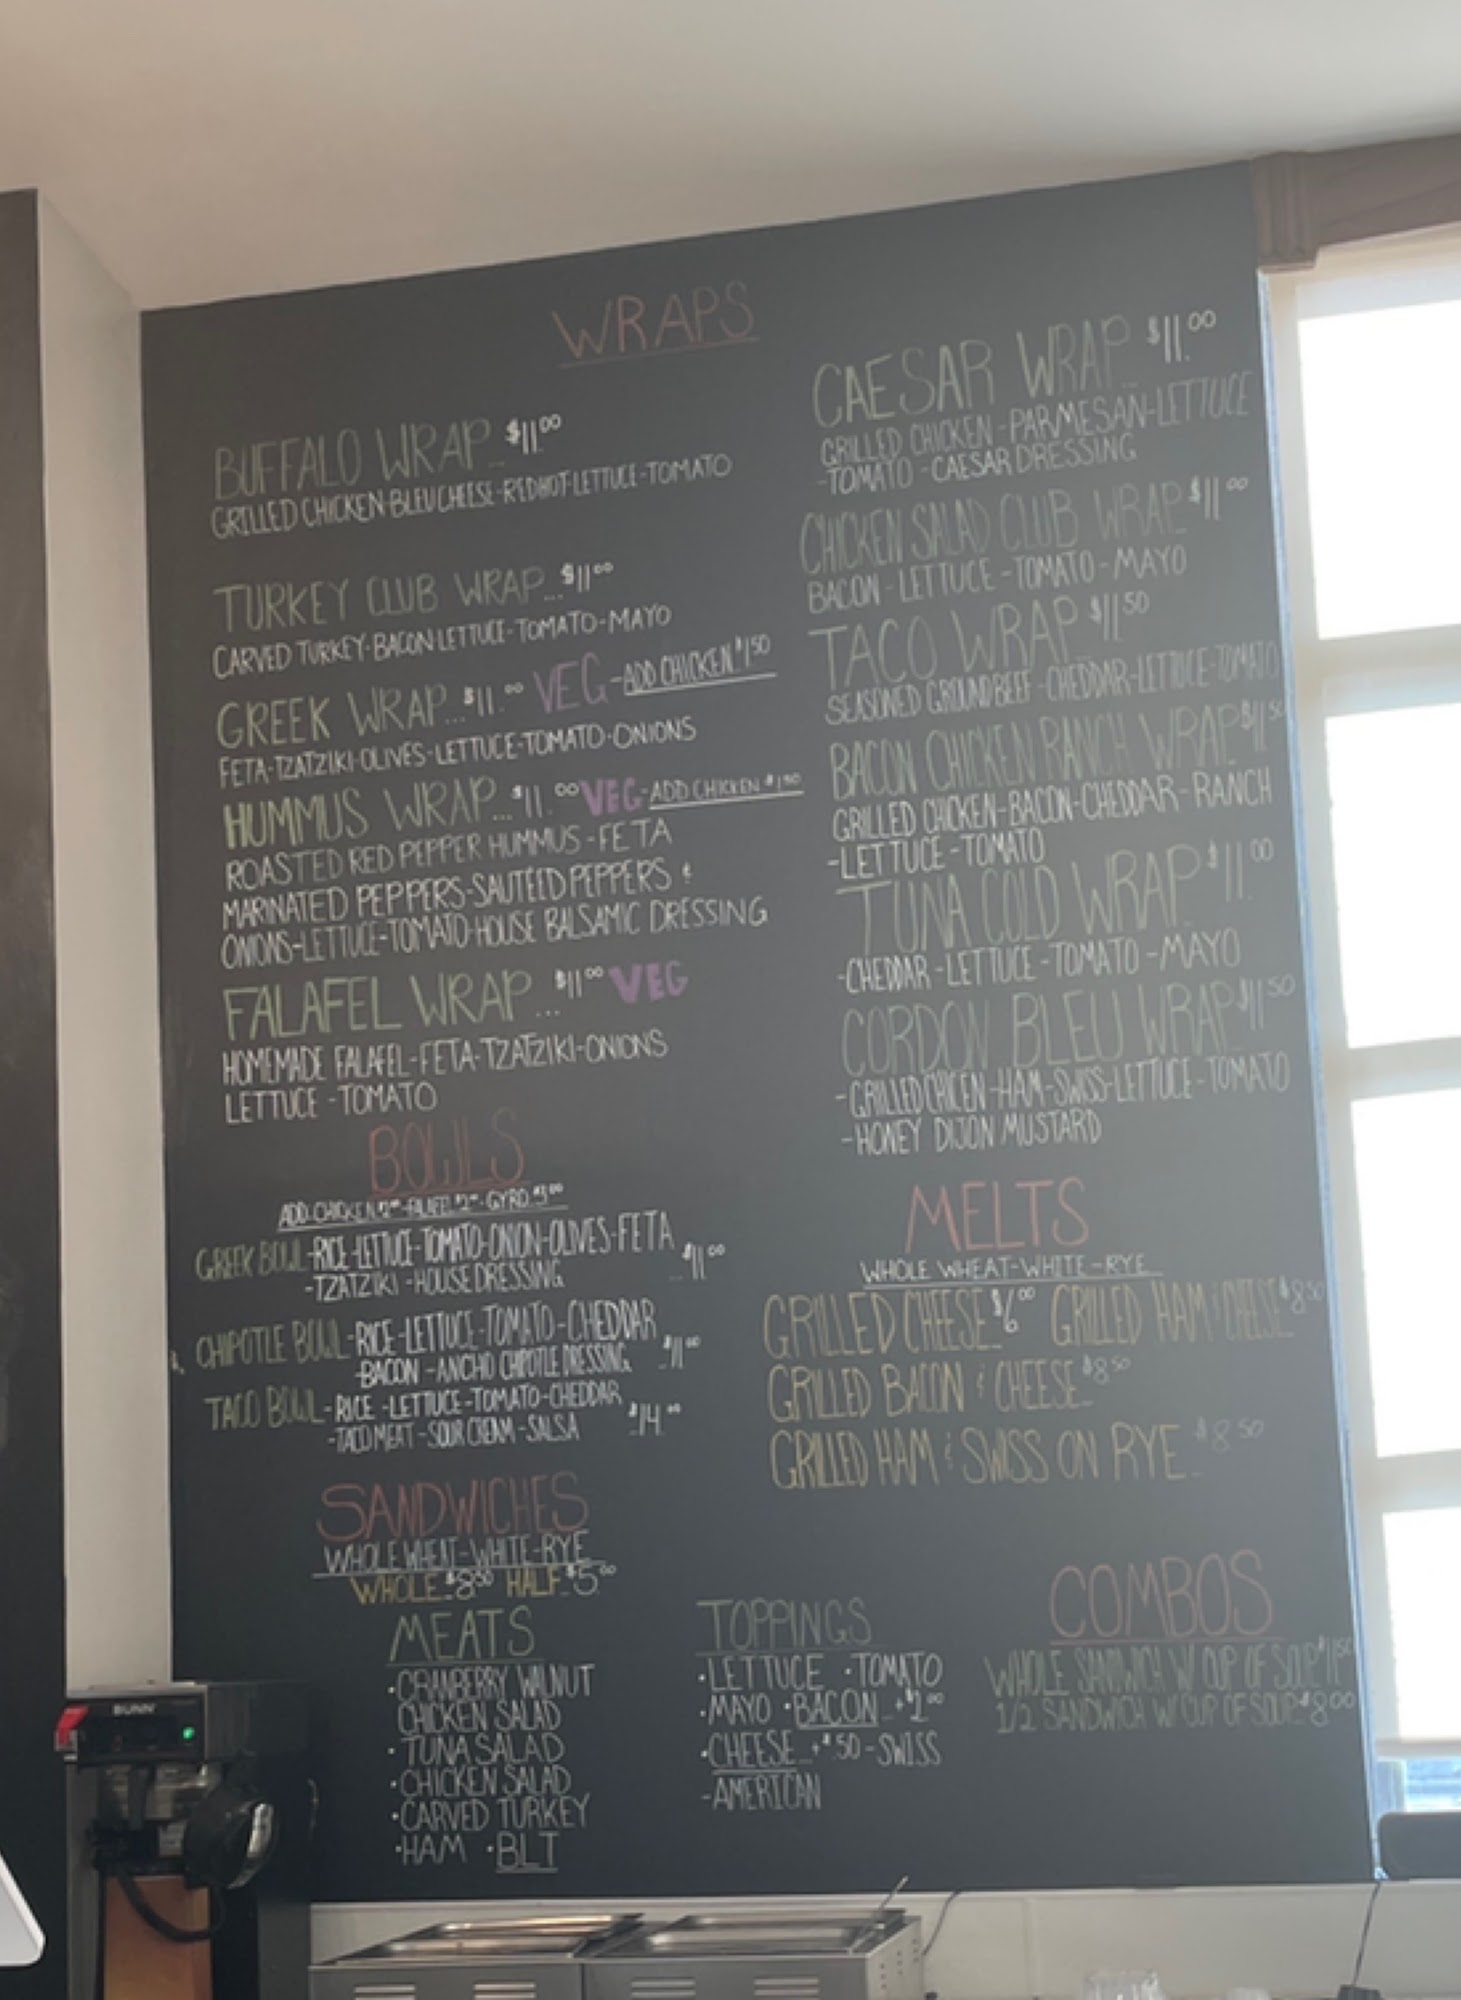 WRAPS
BUFFALO WRAP...$11.00
GRILLED CHICKEN-BLEU CHEESE-REDHOT-LETTUCE-TOMATO
TURKEY CLUB WRAP...$11.00
CARVED TURKEY-BACON-LETTUCE-TOMATO-MAYO
GREEK WRAP...$11.00 VEG-ADD CHICKEN $1.50
FETA-TZATZIKI-OLIVES-LETTUCE-TOMATO-ONIONS
HUMMUS WRAP...$11.00 VEG-ADD CHICKEN $1.50
ROASTED RED PEPPER HUMMUS-FETA
MARINATED PEPPERS-SAUTÉED PEPPERS &
ONIONS-LETTUCE-TOMATO-HOUSE BALSAMIC DRESSING
FALAFEL WRAP...$11.00 VEG
HOMEMADE FALAFEL-FETA-TZATZIKI-ONIONS
LETTUCE-TOMATO
CAESAR WRAP...$11.00
GRILLED CHICKEN-PARMESAN-LETTUCE
-TOMATO-CAESAR DRESSING
CHICKEN SALAD CLUB WRAP..$11.00
BACON-LETTUCE-TOMATO-MAYO
TACO WRAP..$11.50
SEASONED GROUND BEEF-CHEDDAR-LETTUCE-TOMATO
BACON CHICKEN RANCH WRAP $11.50
GRILLED CHICKEN-BACON-CHEDDAR-RANCH
-LETTUCE-TOMATO
TUNA COLD WRAP..$11.00
-CHEDDAR-LETTUCE-TOMATO-MAYO
CORDON BLEU WRAP $11.50
-GRILLED CHICEN-HAM-SWISS-LETTUCE-TOMATO
-HONEY DIJON MUSTARD
BOWLS
ADD CHICKEN $2.00-FALAFEL $2.00-GYRO $3.00
GREEK BOWL-RICE-LETTUCE-TOMATO-ONION-OLIVES-FETA
-TZATZIKI-HOUSE DRESSING ...$11.00
CHIPOTLE BOWL-RICE-LETTUCE-TOMATO-CHEDDAR
-BACON-ANCHO CHIPOTLE DRESSING ..$11.00
TACO BOWL-RICE-LETTUCE-TOMATO-CHEDDAR
-TACO MEAT-SOUR CREAM-SALSA ..$14.00
MELTS
WHOLE WHEAT-WHITE-RYE
GRILLED CHEESE..$6.00 GRILLED HAM & CHEESE..$8.50
GRILLED BACON & CHEESE..$8.50
GRILLED HAM & SWISS ON RYE..$8.50
SANDWICHES
WHOLE WHEAT-WHITE-RYE
WHOLE..$8.50 HALF..$5.00
MEATS
•CRANBERRY WALNUT
CHICKEN SALAD
•TUNA SALAD
•CHICKEN SALAD
•CARVED TURKEY
•HAM •BLT
TOPPINGS
•LETTUCE •TOMATO
•MAYO •BACON..+$1.00
•CHEESE..+$.50-SWISS
-AMERICAN
COMBOS
WHOLE SANDWICH W/ CUP OF SOUP $11.50
1/2 SANDWICH W/ CUP OF SOUP..$8.00
BUNN